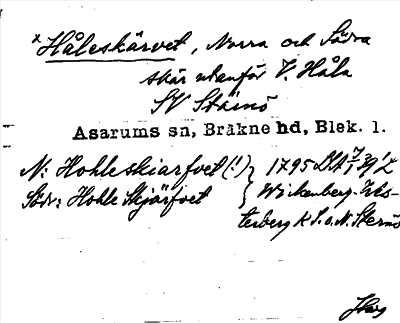 x Håleskärvet, Norra och Södra
skär utanför V. Håla
SV Stärnö
Asarums sn, Bräkne hd, Blek. l.
N: Hohleskiarfvet (!)
Södr: Hohle Skjärfvet
1795 LSA
Wickenberg. Vds-
terberg k S. o. N. Sternö